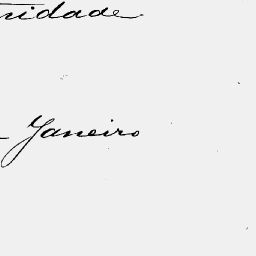 nidade
Janeiro